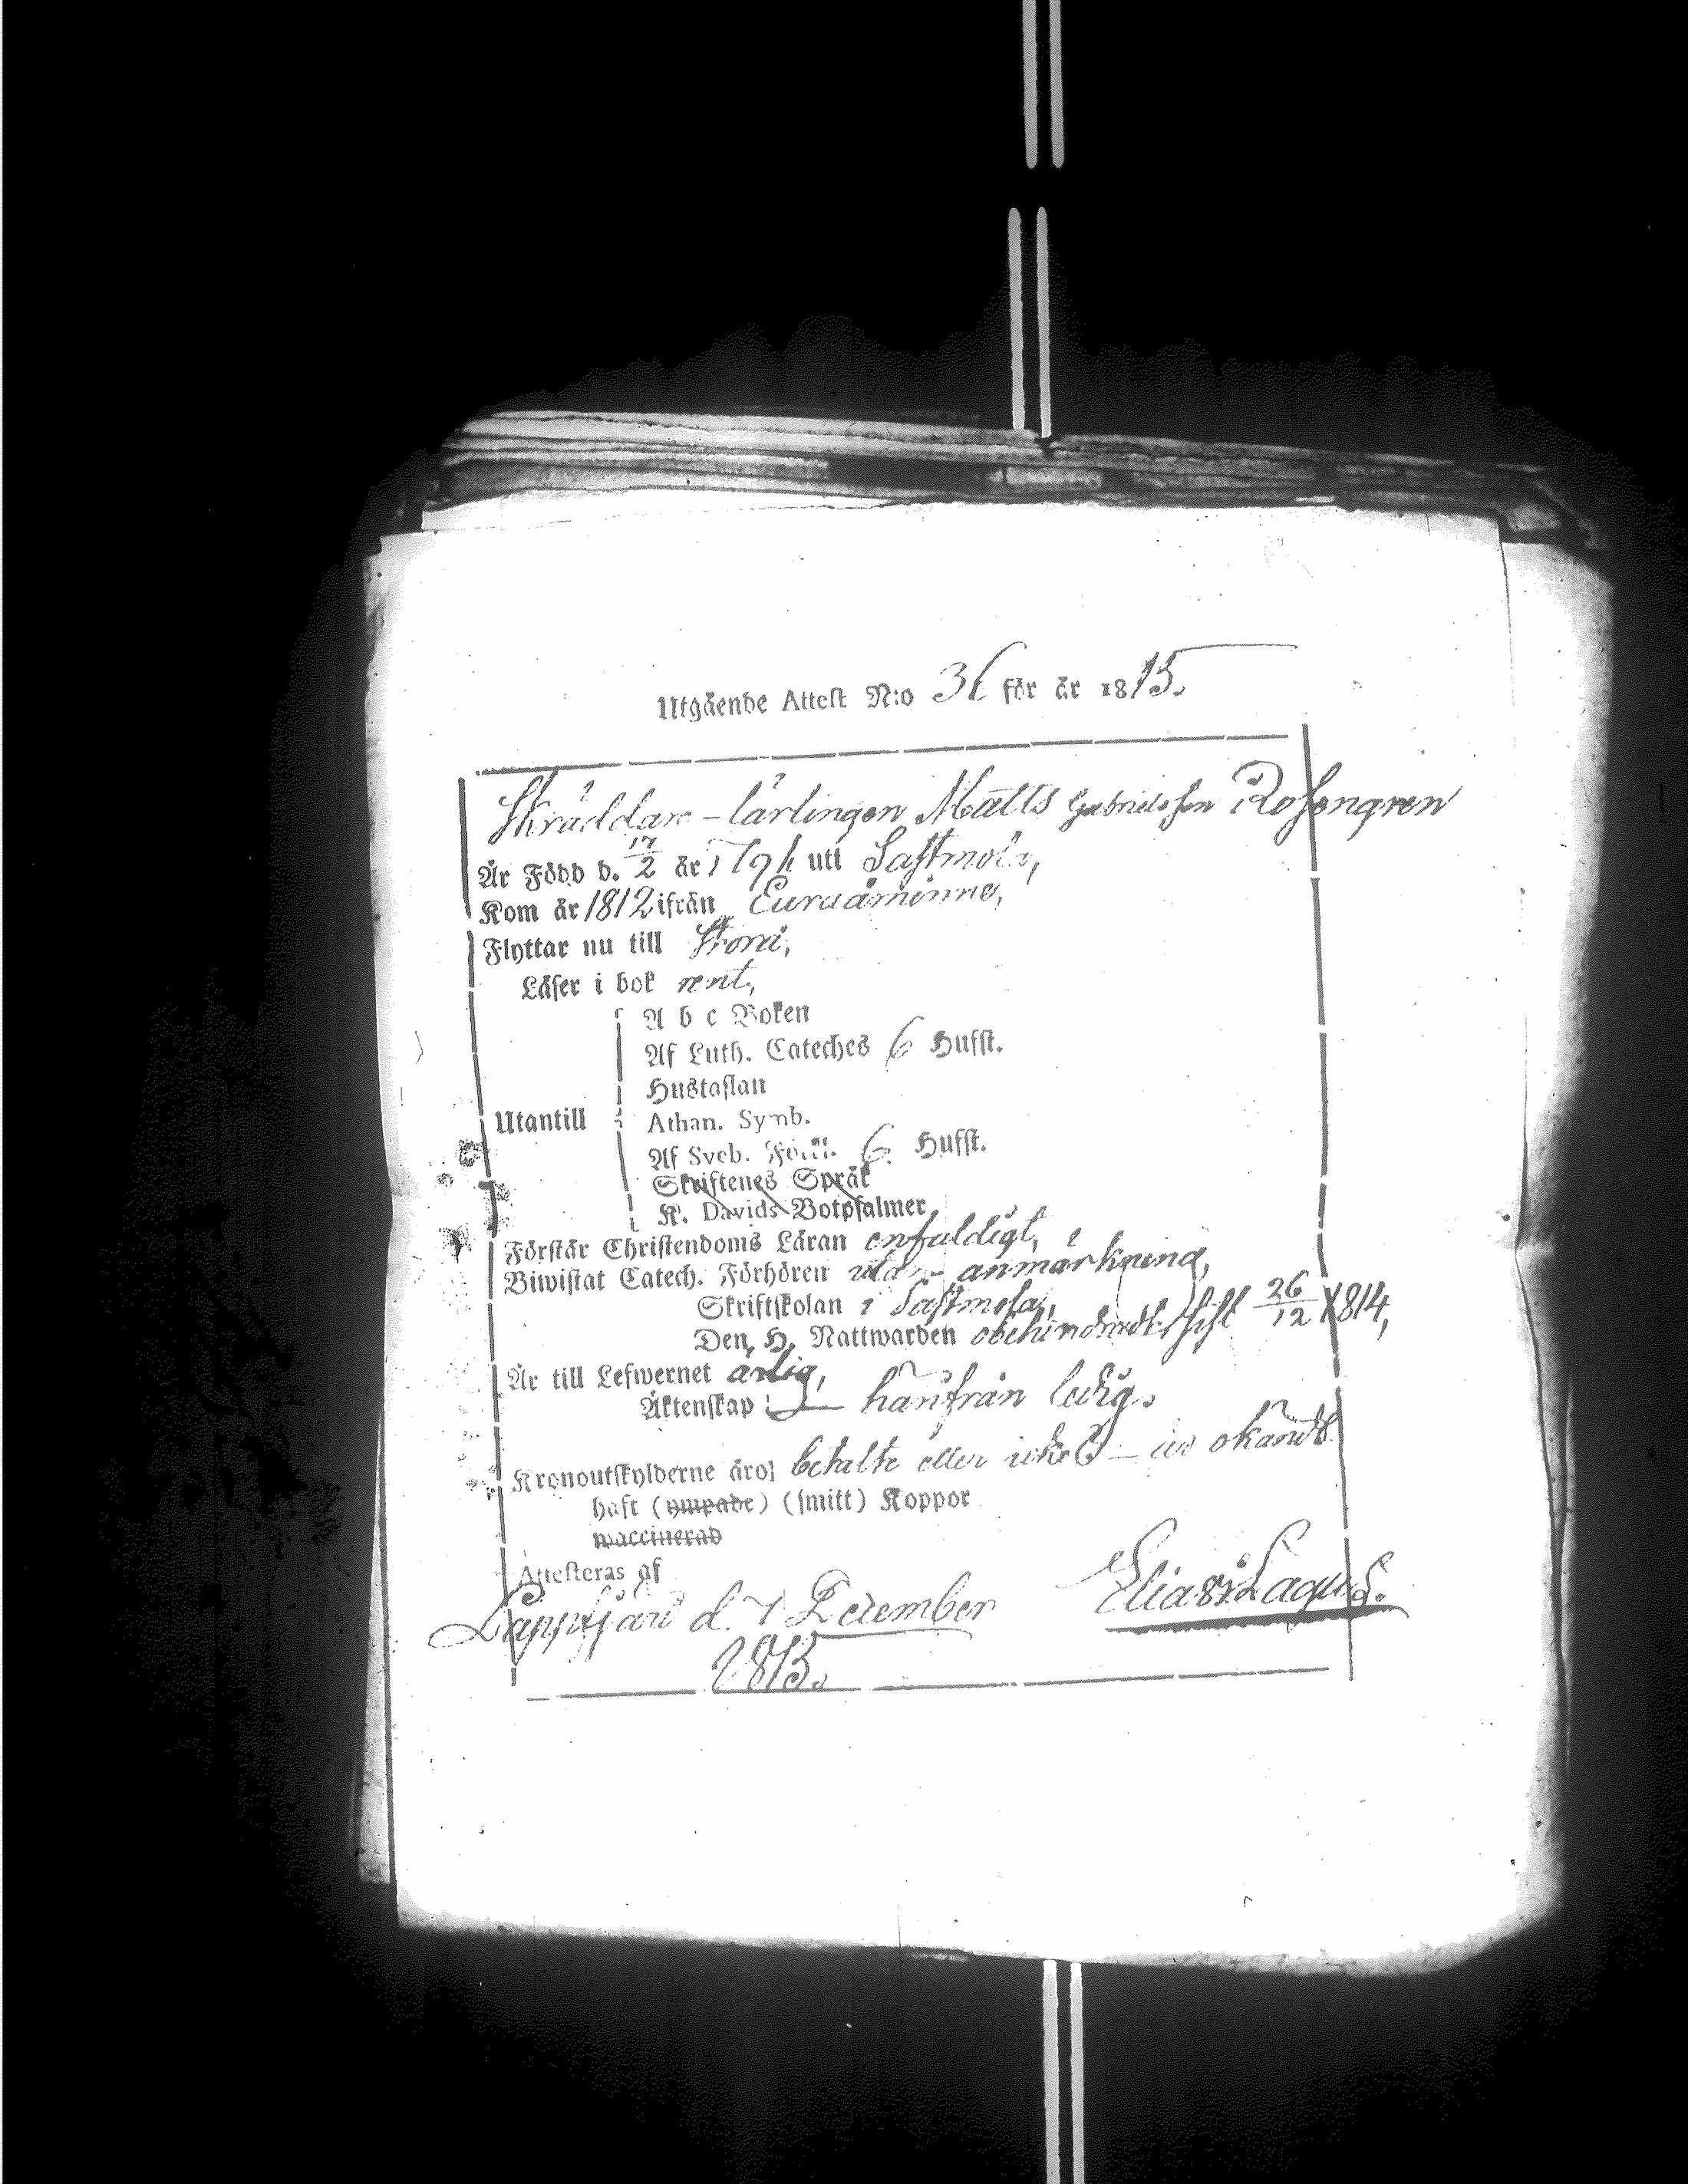 Utgående Attest N:o 36 för år 1815.
Skräddare-lärlingen Matts Gabrielsson Rosengren
Är Född d. 17/2 år 1791 utt Sastmola,
Kom år 1812 ifrån Euraåminne,
Flyttar nu till Storå,
Läser i bok rent,
A b c Boken
Af Luth. Cateches 6 Hufst.
Hustaflan
Utantill Athan. Symb.
Af Sveb. Förkl. 6 Hufst.
Skriftenes Språk
K. Davids Botpsalmer
Förstår Christendoms Läran enfaldigt,
Biwistat Catech. Förhören utan anmärkning,
Skriftskolan i Sastmola,
Den H. Nattwarden obehindradt, sist 26/12 1814,
Är till Lefwernet ärlig,
Äktenskap: härifrån ledig.
Kronoutskylderne äro betalte eller icke okändt
haft (ympade) (smitt) Koppor
waccinerad
Attesteras af
Lappfjärd d. 7 December Elias Lagus.
1815.